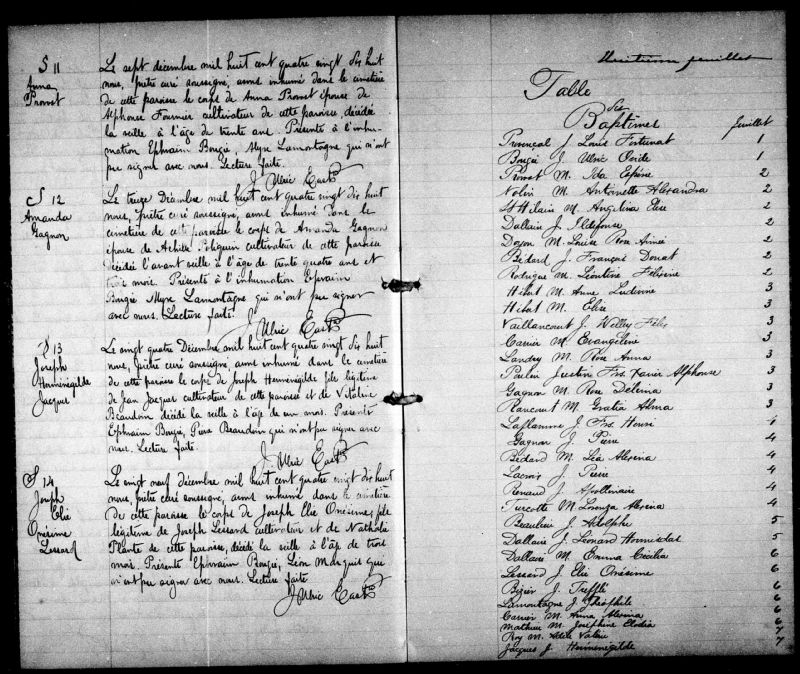 S 11
Anna
Provost
Le sept décembre mil huit cent quatre vingt dix huit
nous, prêtre curé soussigné, avons inhumé dans le cimetière
de cette paroisse le corps de Anna Provost épouse de
Alphonse Fournier cultivateur de cette paroisse, décédée
la veille à l'âge de trente ans. Présents à l'inhu-
mation Ephraim Bougie, Myre Lamontagne qui n'ont
pu signer avec nous. Lecture faite.
J. Ulric
S 12
Amanda
Gagnon
Le treize Décembre mil huit cent quatre vingt dix huit
nous, prêtre curé soussigné, avons inhumé dans le
cimetière de cette paroisse le corps de Amanda Gagnon
épouse de Achille Poliquin cultivateur de cette paroisse
décédée l'avant veille à l'âge de trente quatre ans et
trois mois. Présents à l'inhumation Ephraim
Bougie Myre Lamontagne qui n'ont pu signer
avec nous. Lecture faite.
J. Ulric
S 13
Joseph
Herménégilde
Jacques
Le vingt quatre Décembre mil huit cent quatre vingt dix huit
nous, prêtre curé soussigné, avons inhumé dans le cimetière
de cette paroisse le corps de Joseph Herménégilde fils légitime
de Jean Jacques cultivateur de cette paroisse et de Vitaline
Beaudoin décédé la veille à l'âge de un mois. Présents
Ephraim Bougie, Beaudoin qui n'ont pu signer avec
nous. Lecture faite.
J. Ulric
S 14
Joseph
Elie
Onésime
Lessard
Le vingt neuf décembre mil huit cent quatre vingt dix huit
nous, prêtre curé soussigné, avons inhumé dans le cimetière
de cette paroisse le corps de Joseph Elie Onésime, fils
légitime de Joseph Lessard cultivateur et de Nathalie
Plante de cette paroisse, décédé la veille à l'âge de trois
mois. Présents Ephraim Bougie, Léon Marquis qui
n'ont pu signer avec nous. Lecture faite
J. Ulric
Huitième feuillet
Table
des
Baptêmes
feuillet
Provençal J. Louis Fortunat 1
Bougie J. Ulric Ovide 1
Provost M. Ida 2
Nolin M. Antoinette Alexandra 2
St Hilaire M. Angelina 2
Dallair J. Ildefonse 2
Doyon M. Louise Rose Aimée 2
Bédard J. François Donat 2
Rodrigue M. Léontine 2
Hébert M. Anne Ludivine 3
Hébert M. Elise 3
Vaillancourt J. Félix 3
Carrier M. Evangeline 3
Landry M. Rose Anna 3
Poulin Justin Frs. Xavier Alphonse 3
Gagnon M. Rose Délima 3
Rancourt M. Gratia Alma 3
Laflamme J. Frs. Henri 4
Gagnon J. Pierre 4
Bédard M. Léa Alexina 4
Lacroix J. Pierre 4
Renaud J. Apollinaire 4
Turcotte M. Lorenza Alexina 4
Beaulieu J. Adolphe 5
Dallaire J. Léonard Hormisdas 5
Dallaire M. Emma Cécilia 6
Lessard J. Elie Onésime 6
Bizier J. Trefflé 6
Lamontagne J. Théophile 6
Carrier M. Anna Alexina 6
Mathieu M. Joséphine Elodia 6
Roy M. Adèle 7
Jacques J. Herménégilde 7